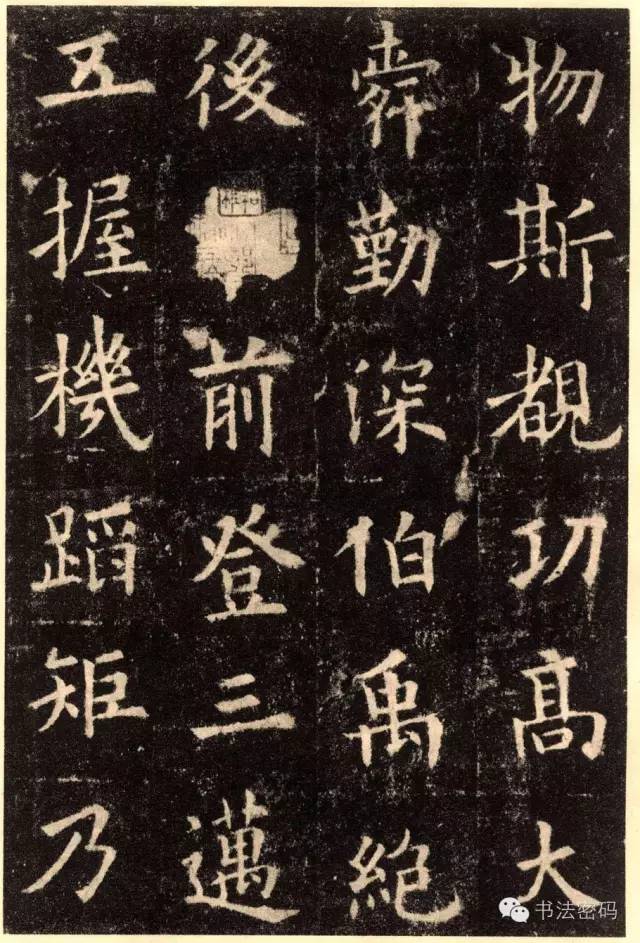 物斯覩功髙大
舜勤深伯禹絶
後前登三邁
五握機蹈矩乃
书法密码